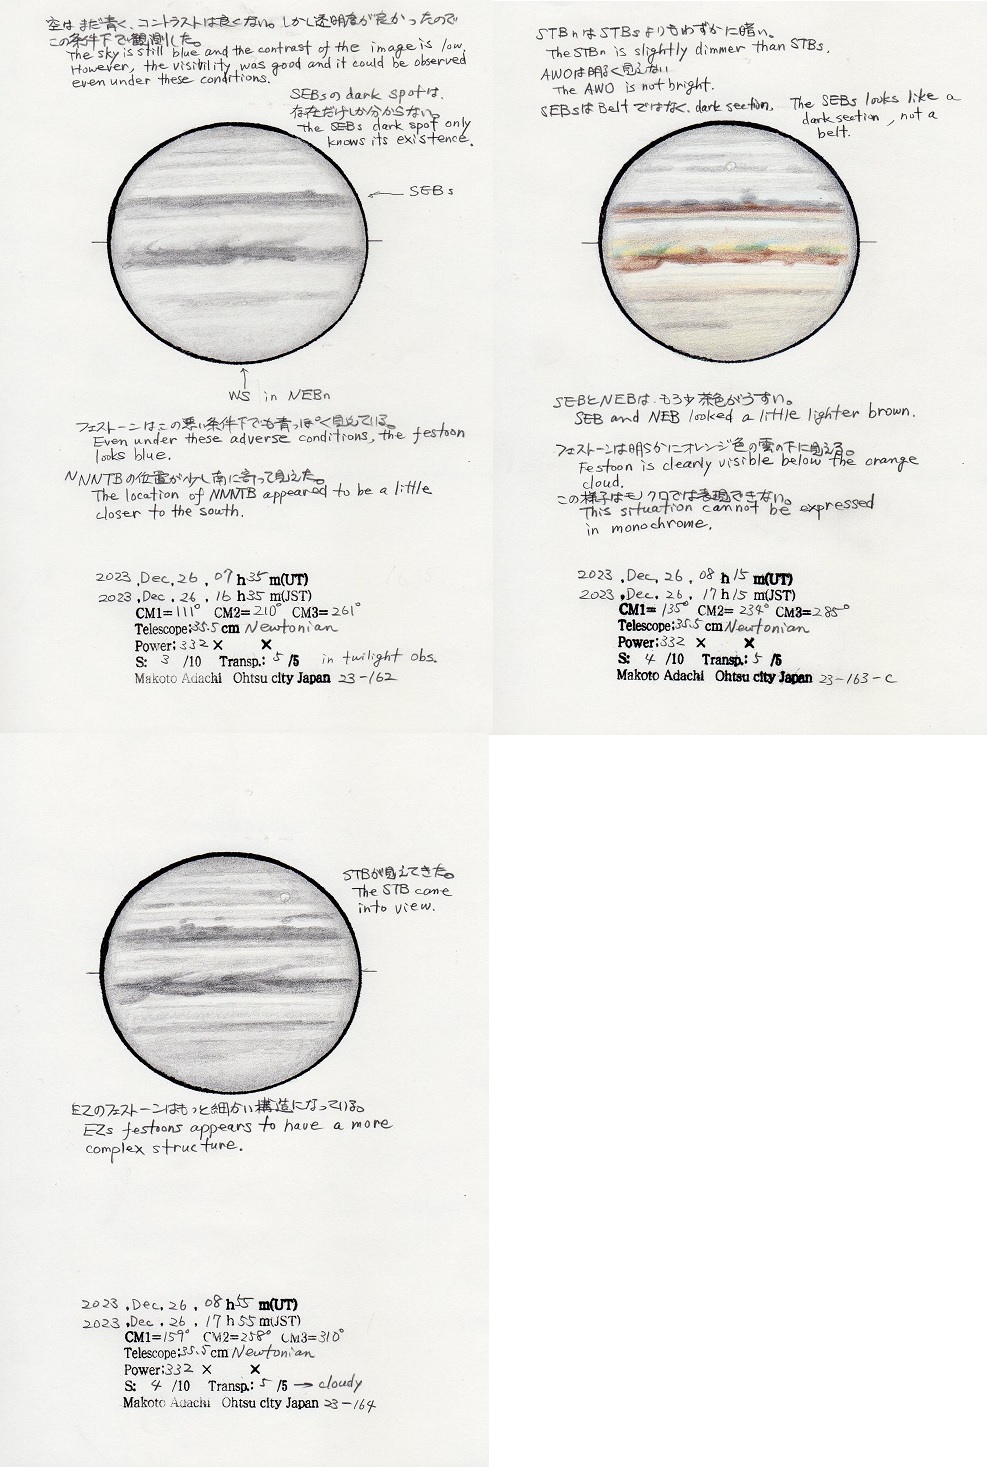 空はまだ青く、コントラストは良くない。しかし透明度が良かったので
この条件下で観測した。
The sky is still blue and the contrast of the image is low.
However, the visibility was good and it could be observed
even under these conditions.
SEBsのdark spotは、
存在だけしか分からない。
The SEBs dark spot only
knows its existence.
SEBs
WS in NEBn
フェストーンはこの悪い条件下でも青っぽく見えている。
Even under these adverse conditions, the festoon
looks blue.
NNNTBの位置が少し南に寄って見えた。
The location of NNNTB appeared to be a little
closer to the south.
2023 .Dec. 26 , 07 h 35 m(UT)
2023 .Dec. 26 , 16 h 35 m(JST)
CM1=111° CM2=210° CM3=261°
Telescope:35.5 cm Newtonian
Power:332 × ×
S: 3 /10 Transp.: 5 /5 in twilight obs.
Makoto Adachi Ohtsu city Japan 23-162
STBnはSTBsよりもわずかに暗い。
The STBn is slightly dimmer than STBs.
AWOは明るく見えない
The AWO is not bright.
SEBsはBeltではなく、dark section.
The SEBs looks like a
dark section, not a
belt.
SEBとNEBは、もう少し茶色がうすい。
SEB and NEB looked a little lighter brown.
フェストーンは明らかにオレンジ色の雲の下に見える。
Festoon is clearly visible below the orange
cloud.
この様子はモノクロでは表現できない。
This situation cannot be expressed
in monochrome.
2023 .Dec. 26 , 08 h 15 m(UT)
2023 .Dec. 26 , 17 h 15 m(JST)
CM1=135° CM2=234° CM3=285°
Telescope:35.5 cm Newtonian
Power:332 × ×
S: 4 /10 Transp.: 5 /5
Makoto Adachi Ohtsu city Japan 23-163-c
STBが見えてきた。
The STB came
into view.
EZのフェストーンはもっと細かい構造になっている。
EZs festoons appears to have a more
complex structure.
2023 .Dec. 26 , 08 h 55 m(UT)
2023 .Dec. 26 , 17 h 55 m(JST)
CM1=159° CM2=258° CM3=310°
Telescope:35.5 cm Newtonian
Power:332 × ×
S: 4 /10 Transp.: 5 /5 → cloudy
Makoto Adachi Ohtsu city Japan 23-164